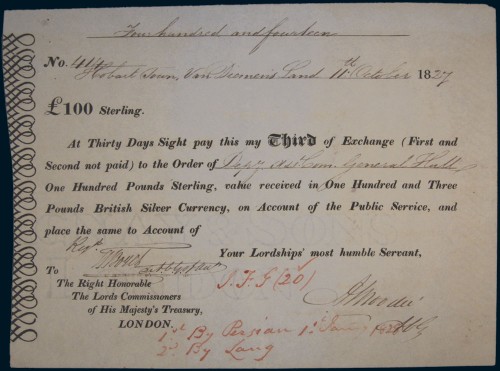 Four hundred and fourteen
No. 414
Hobart Town, Van Diemen's Land 11th October 1827
£100 Sterling.
At Thirty Days Sight pay this my Third of Exchange (First and
Second not paid) to the Order of Depy Asst Com. General Hull
One Hundred Pounds Sterling, value received in One Hundred and Three
Pounds British Silver Currency, on Account of the Public Service, and
place the same to Account of
Your Lordships' most humble Servant,
To
The Right Honorable
The Lords Commissioners
of His Majesty's Treasury,
LONDON.
J.F.G (20)
A Moodie
1st By Persian 1st Jany
2nd By Lang